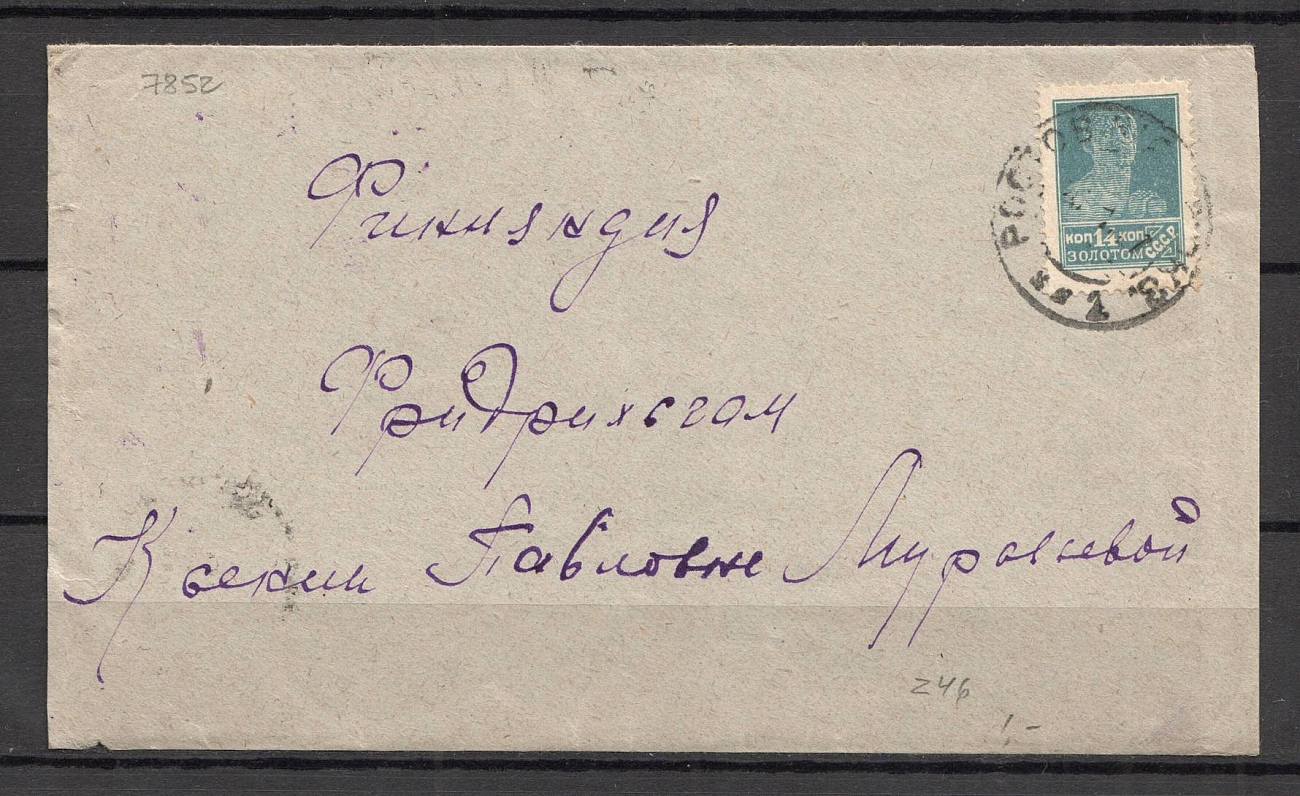 7852
РОСТОВ
КОП 14 КОП
ЗОЛОТОМ
СССР
Финляндия
Фридрихсгам
Ксении Павловне
246